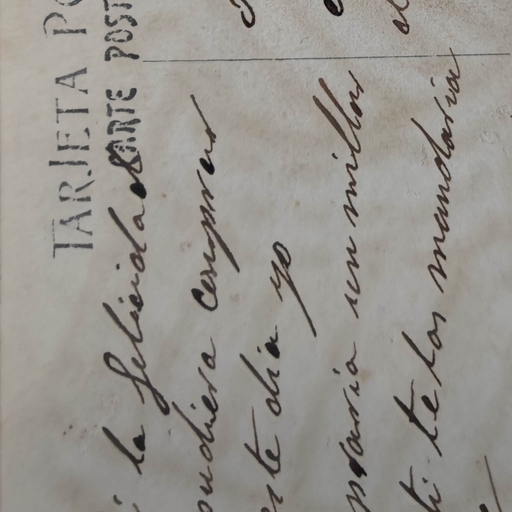 TARJETA PO
CARTE POST
la felicidad
pudiera comprar
este dia yo
un millon
ti te los mandaria